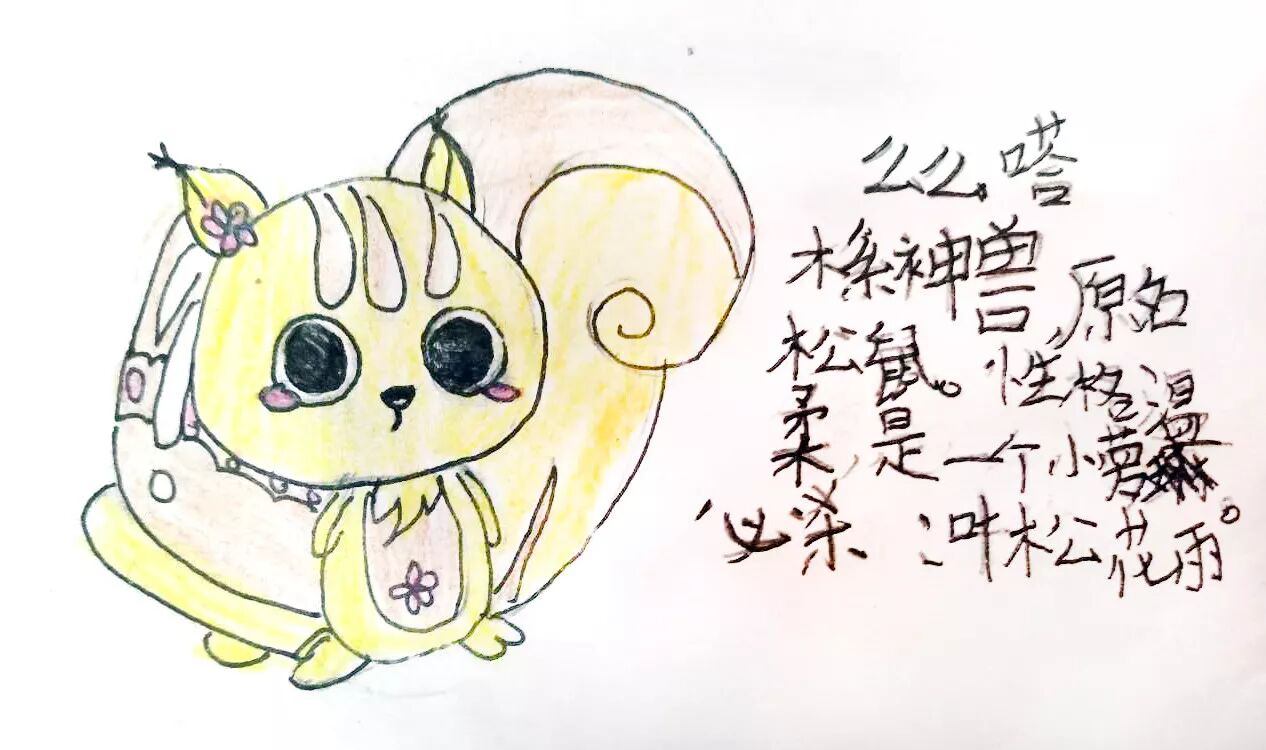 么么嗒
木系神兽,原名
松鼠。性格温
柔,是一个小萝
必杀:叶松花雨。